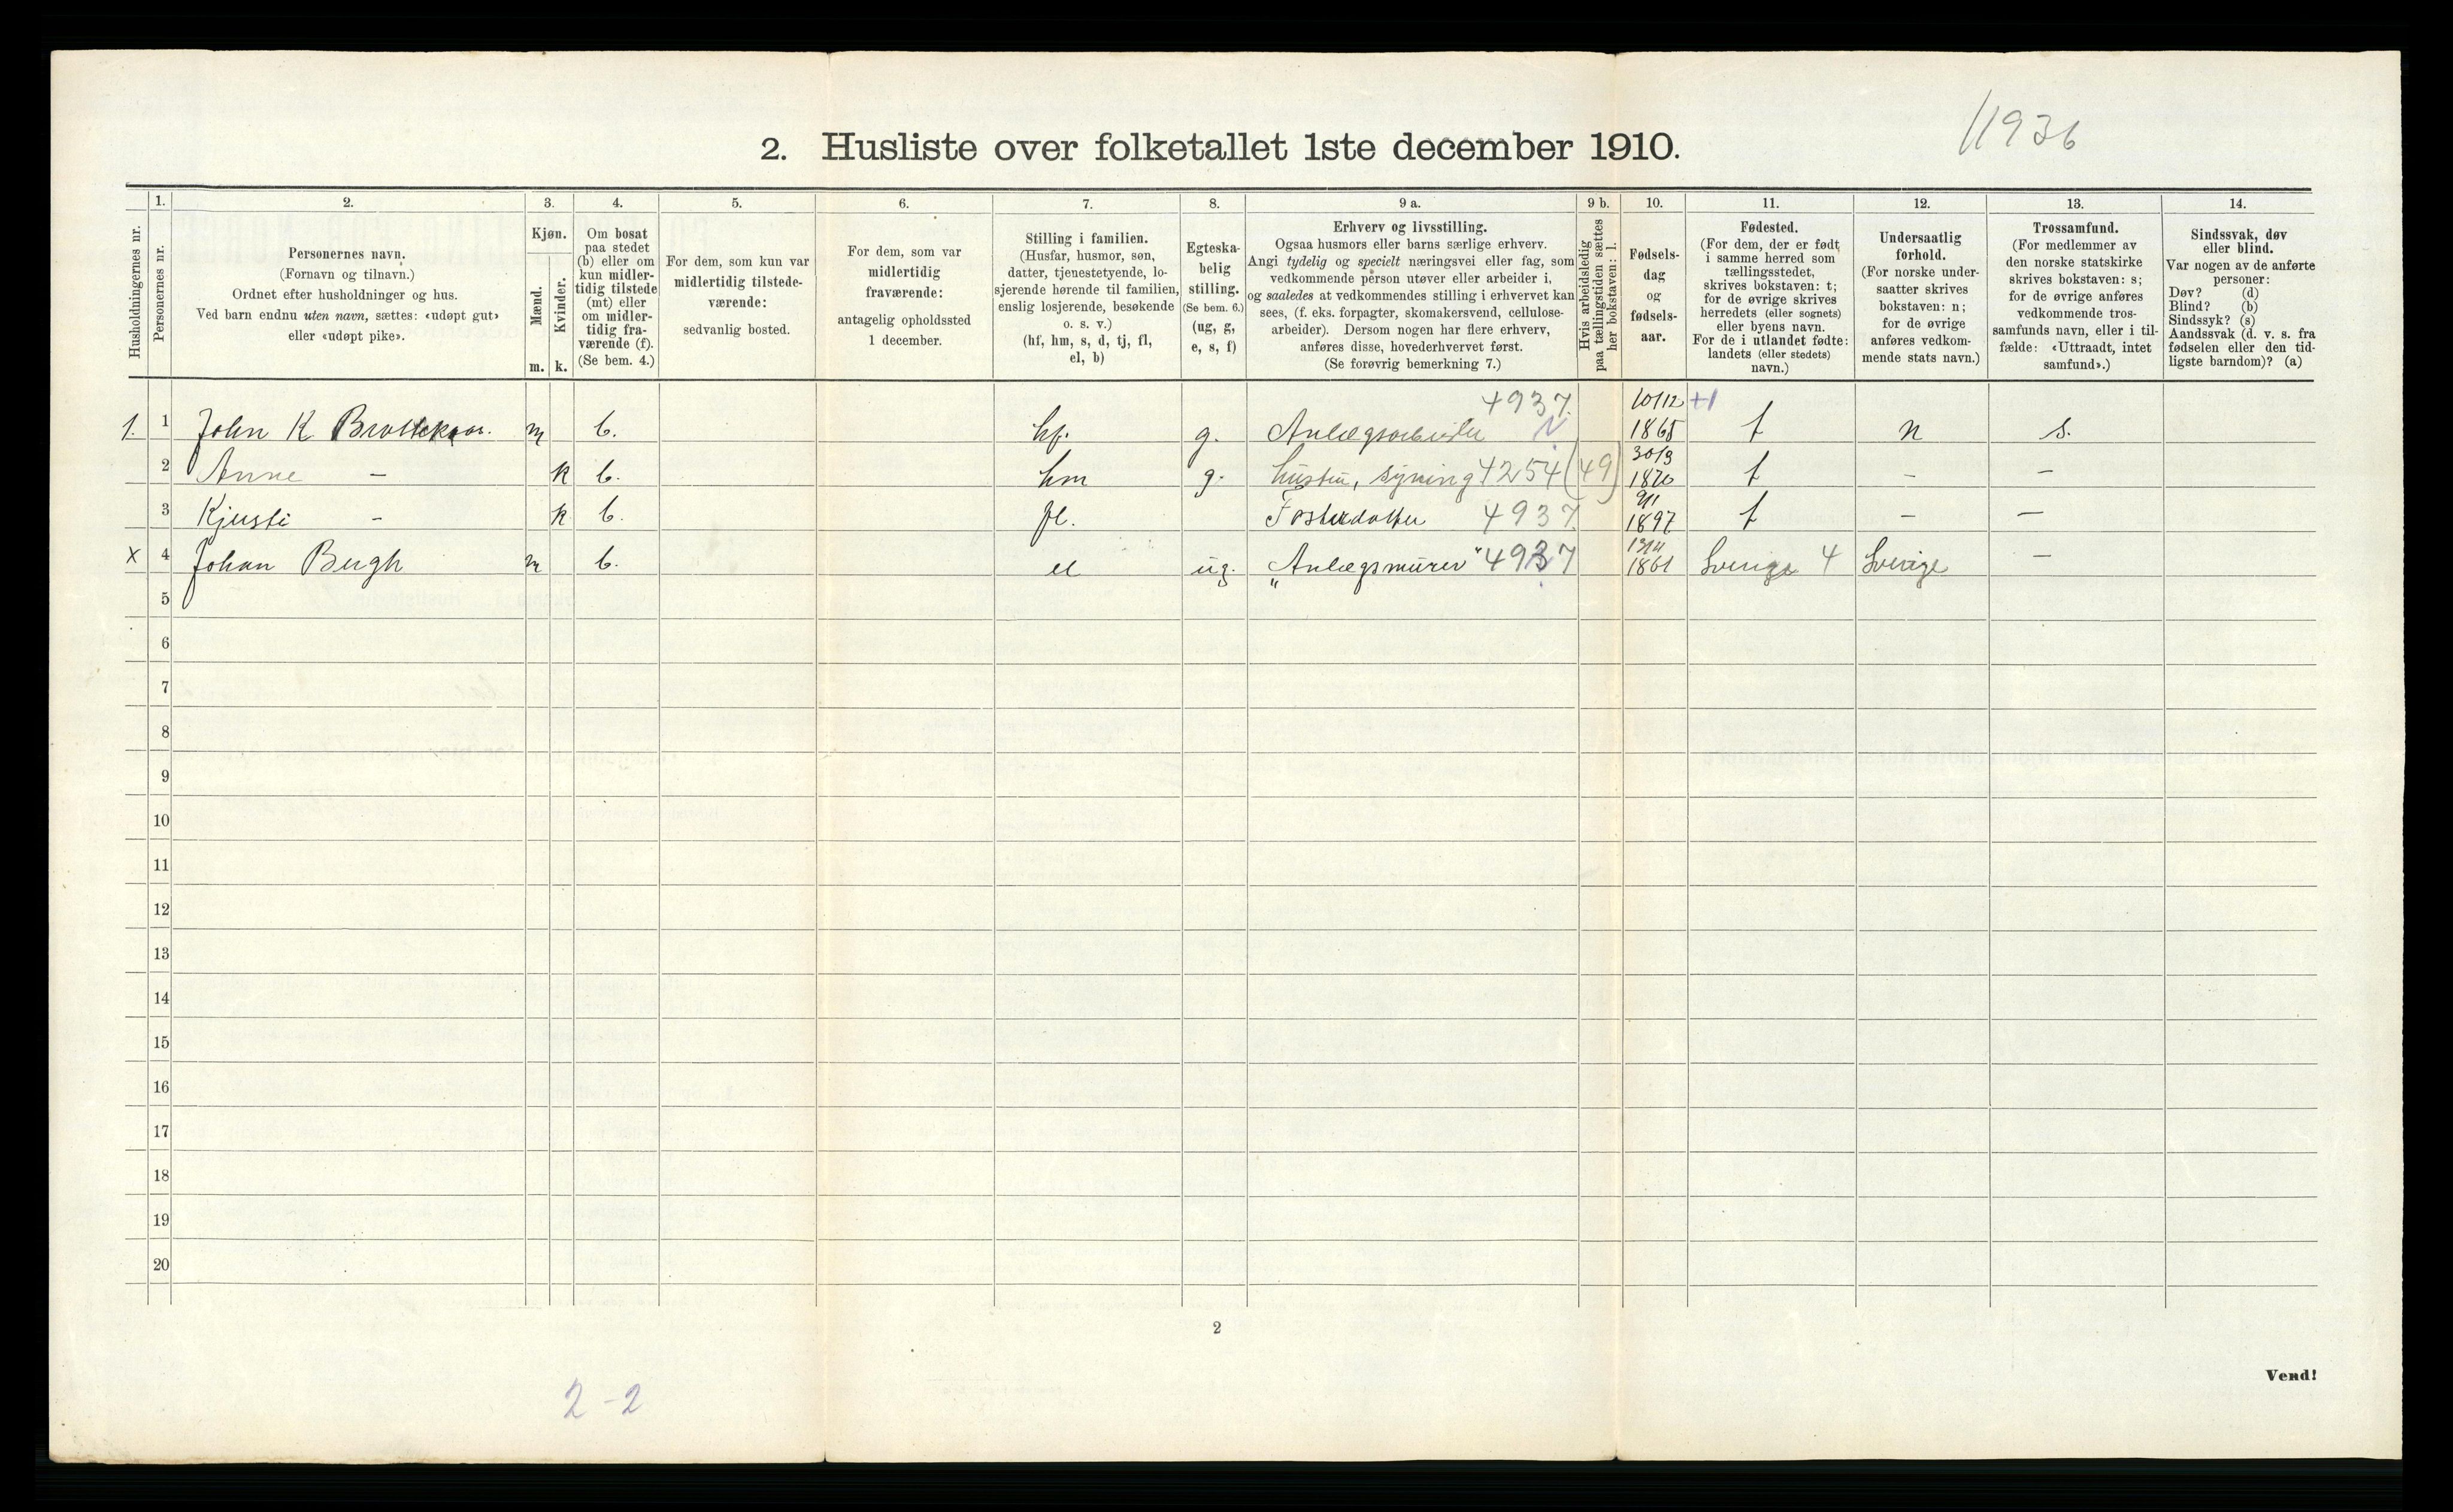 11936
2. Husliste over folketallet 1ste december 1910.
Husholdningernes nr.
1.
Personernes nr.
2.
Personernes navn.
(Fornavn og tilnavn.)
Ordnet efter husholdninger og hus.
Ved barn endnu uten navn, sættes: «udøpt gut»
eller «udøpt pike».
3.
Kjøn.
Mænd.
Kvinder.
m. k.
4.
Om bosat
paa stedet
(b) eller om
kun midler-
tidig tilstede
(mt) eller
om midler-
tidig fra-
værende (f).
(Se bem. 4.)
5.
For dem, som kun var
midlertidig tilstede-
værende:
sedvanlig bosted.
6.
For dem, som var
midlertidig
fraværende:
antagelig opholdssted
1 december.
7.
Stilling i familien.
(Husfar, husmor, søn,
datter, tjenestetyende, lo-
sjerende hørende til familien,
enslig losjerende, besøkende
o. s. v.)
(hf, hm, s, d, tj, fl,
el, b)
8.
Egteska-
belig
stilling.
(Se bem. 6.)
(ug, g,
e, s, f)
9 a.
Erhverv og livsstilling.
Ogsaa husmors eller barns særlige erhverv.
Angi tydelig og specielt næringsvei eller fag, som
vedkommende person utøver eller arbeider i,
og saaledes at vedkommendes stilling i erhvervet kan
sees, (f. eks. forpagter, skomakersvend, cellulose-
arbeider). Dersom nogen har flere erhverv,
anføres disse, hovederhvervet først.
(Se forøvrig bemerkning 7.)
9 b.
Hvis arbeidsledig
paa tællingstiden sættes
her bokstaven: l.
10.
Fødsels-
dag
og
fødsels-
aar.
11.
Fødested.
(For dem, der er født
i samme herred som
tællingsstedet,
skrives bokstaven: t;
for de øvrige skrives
herredets (eller sognets)
eller byens navn.
For de i utlandet fødte:
landets (eller stedets)
navn.)
12.
Undersaatlig
forhold.
(For norske under-
saatter skrives
bokstaven: n;
for de øvrige
anføres vedkom-
mende stats navn.)
13.
Trossamfund.
(For medlemmer av
den norske statskirke
skrives bokstaven: s;
for de øvrige anføres
vedkommende tros-
samfunds navn, eller i til-
fælde: «Uttraadt, intet
samfund».)
14.
Sindssvak, døv
eller blind.
Var nogen av de anførte
personer:
Døv? (d)
Blind? (b)
Sindssyk? (s)
Aandssvak (d. v. s. fra
fødselen eller den tid-
ligste barndom)? (a)
4937 10/12 +1
1. 1 John K m b. hf. g. Anlægsarbeider 1865 t n s.
30/3
2 Anne – k b. hm g. hustru, syning 4254 (49) 1870 t – –
9/1
3 Kjersti – k b. fl. Fosterdatter 4937 1897 t – –
13/4
x 4 Johan Bergh m b. el ug. "Anlægsmurer" 4937 1861 Sverige 4 Sverige –
5
6
7
8
9
10
11
12
13
14
15
16
17
18
19
20
2
Vend!
2-2